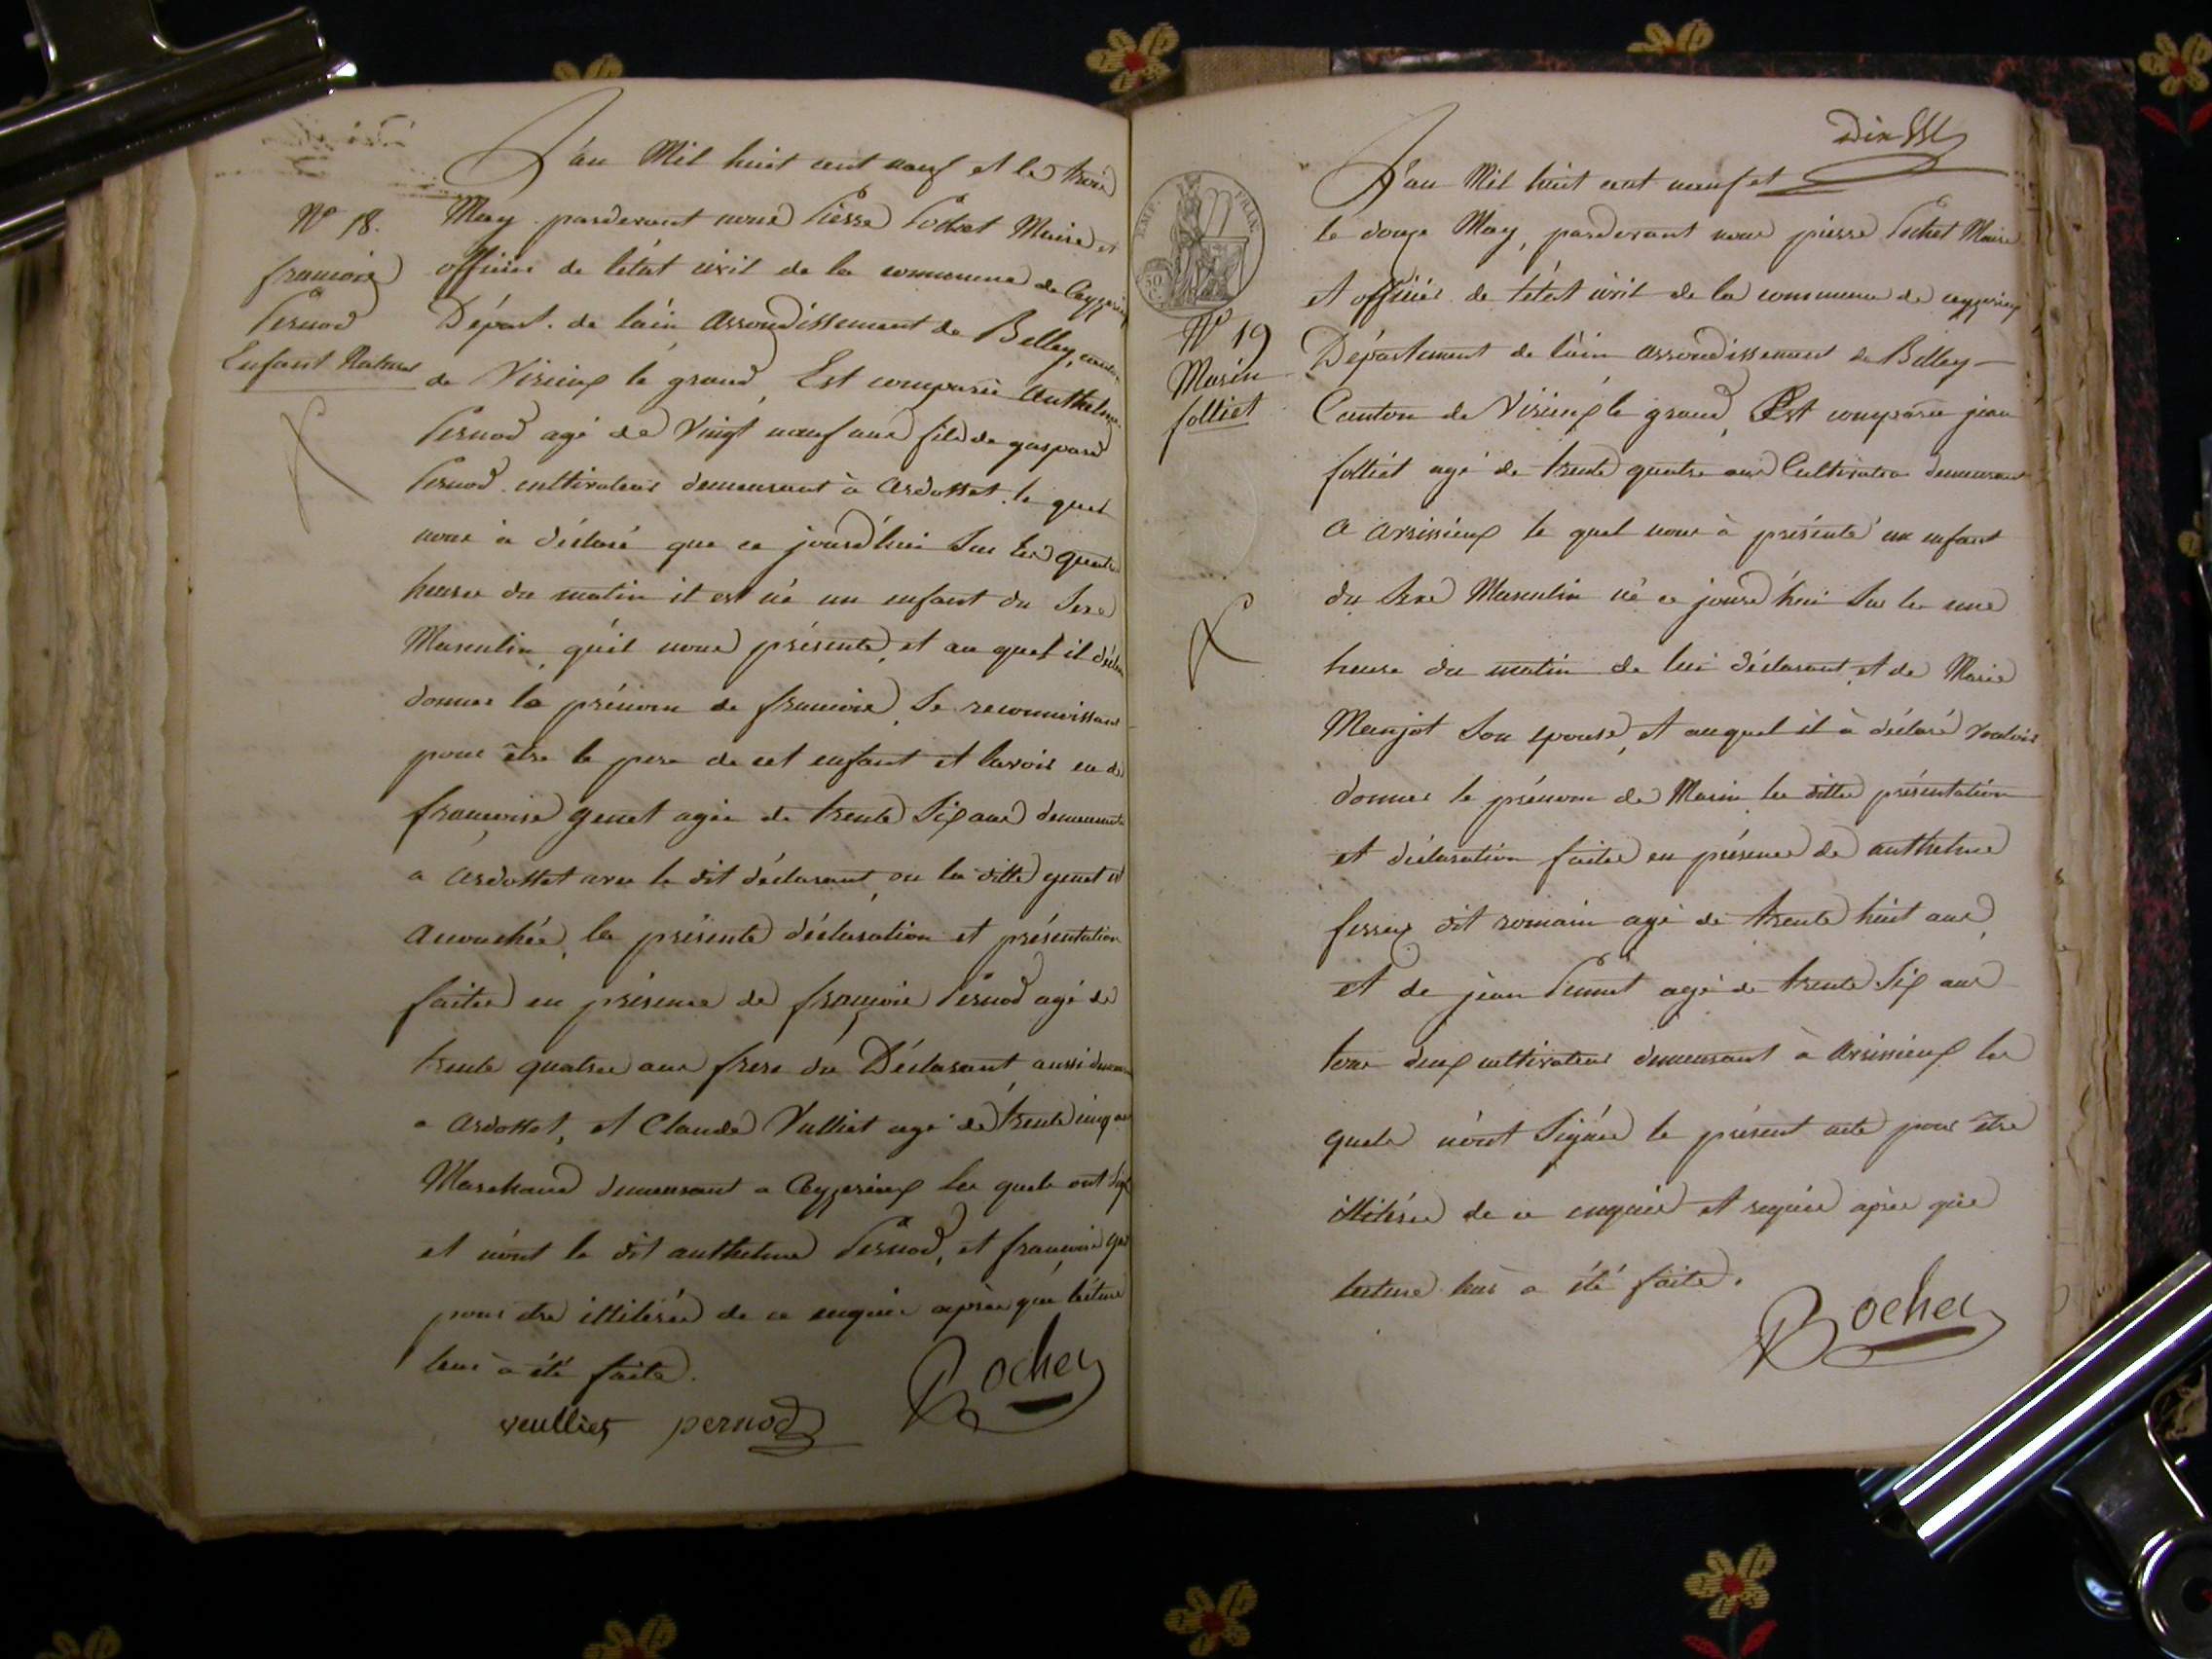 L'an Mil huit cent neuf et le trois
May pardevant nous Pierre Pochet Maire et
officier de l'état civil de la commune de Ceyzerieux
Départ. de l'ain, Arrondissement de Belley, canton
de Virieux le grand, Est comparu Anthelme
Pernod agé de Vingt neuf ans fils de gaspard
Pernod cultivateur demeurant à Ardosset, le quel
nous à déclaré que ce jourd'hui Sur les quatre
heures du matin il est né un enfant du Sexe
Masculin, qu'il nous présente, et au quel il déclare
donner le prénom de françois, Se reconnoissant
pour être le pere de cet enfant et l'avoir eu de
françoise genet agée de trente Six ans demeurante
a Ardosset avec le dit déclarant, ou la ditte genet est
Accouchée, la présente déclaration et présentation
faites en présence de françois Pernod agé de
trente quatre ans frere du Déclarant, aussi
a Ardosset, et Claude Vulliet agé de trente cinq ans
Marchand demeurant a Ceyzerieux les quels ont
et n'ont le dit anthelme Pernod, et françoise
pour être illitérés de ce enquis après que lecture
leur à été faite.
vulliet pernod Pochet
N° 18.
françois
Pernod
Enfant Naturel
L'an Mil huit cent neuf et
le douze May, pardevant nous pierre Pochet Maire
et officier de l'état civil de la commune de ceyzerieux
Département de l'ain arrondissement de Belley
Canton de Virieux le grand, Est comparu jean
folliet agé de trente quatre ans Cultivateur demeurant
a avrissieux le quel nous à présenté un enfant
du Sexe Masculin né ce jourd'hui Sur les une
heure du matin de lui déclarant, et de Marie
Manjot Son epouse, et auquel il à déclaré vouloir
donner le prénom de Marin les dittes présentation
et déclaration faites en présence de anthelme
ferreux dit romain agé de trente huit ans,
et de jean agé de trente Six ans
tous deux cultivateurs demeurant à avrissieux les
quels n'ont Signés le présent acte pour être
illitérés de ce enquis et requis après que
lecture leur a été faite.
Pochet
EMP. FRAN.
50 C.
N° 19
Marin
folliet